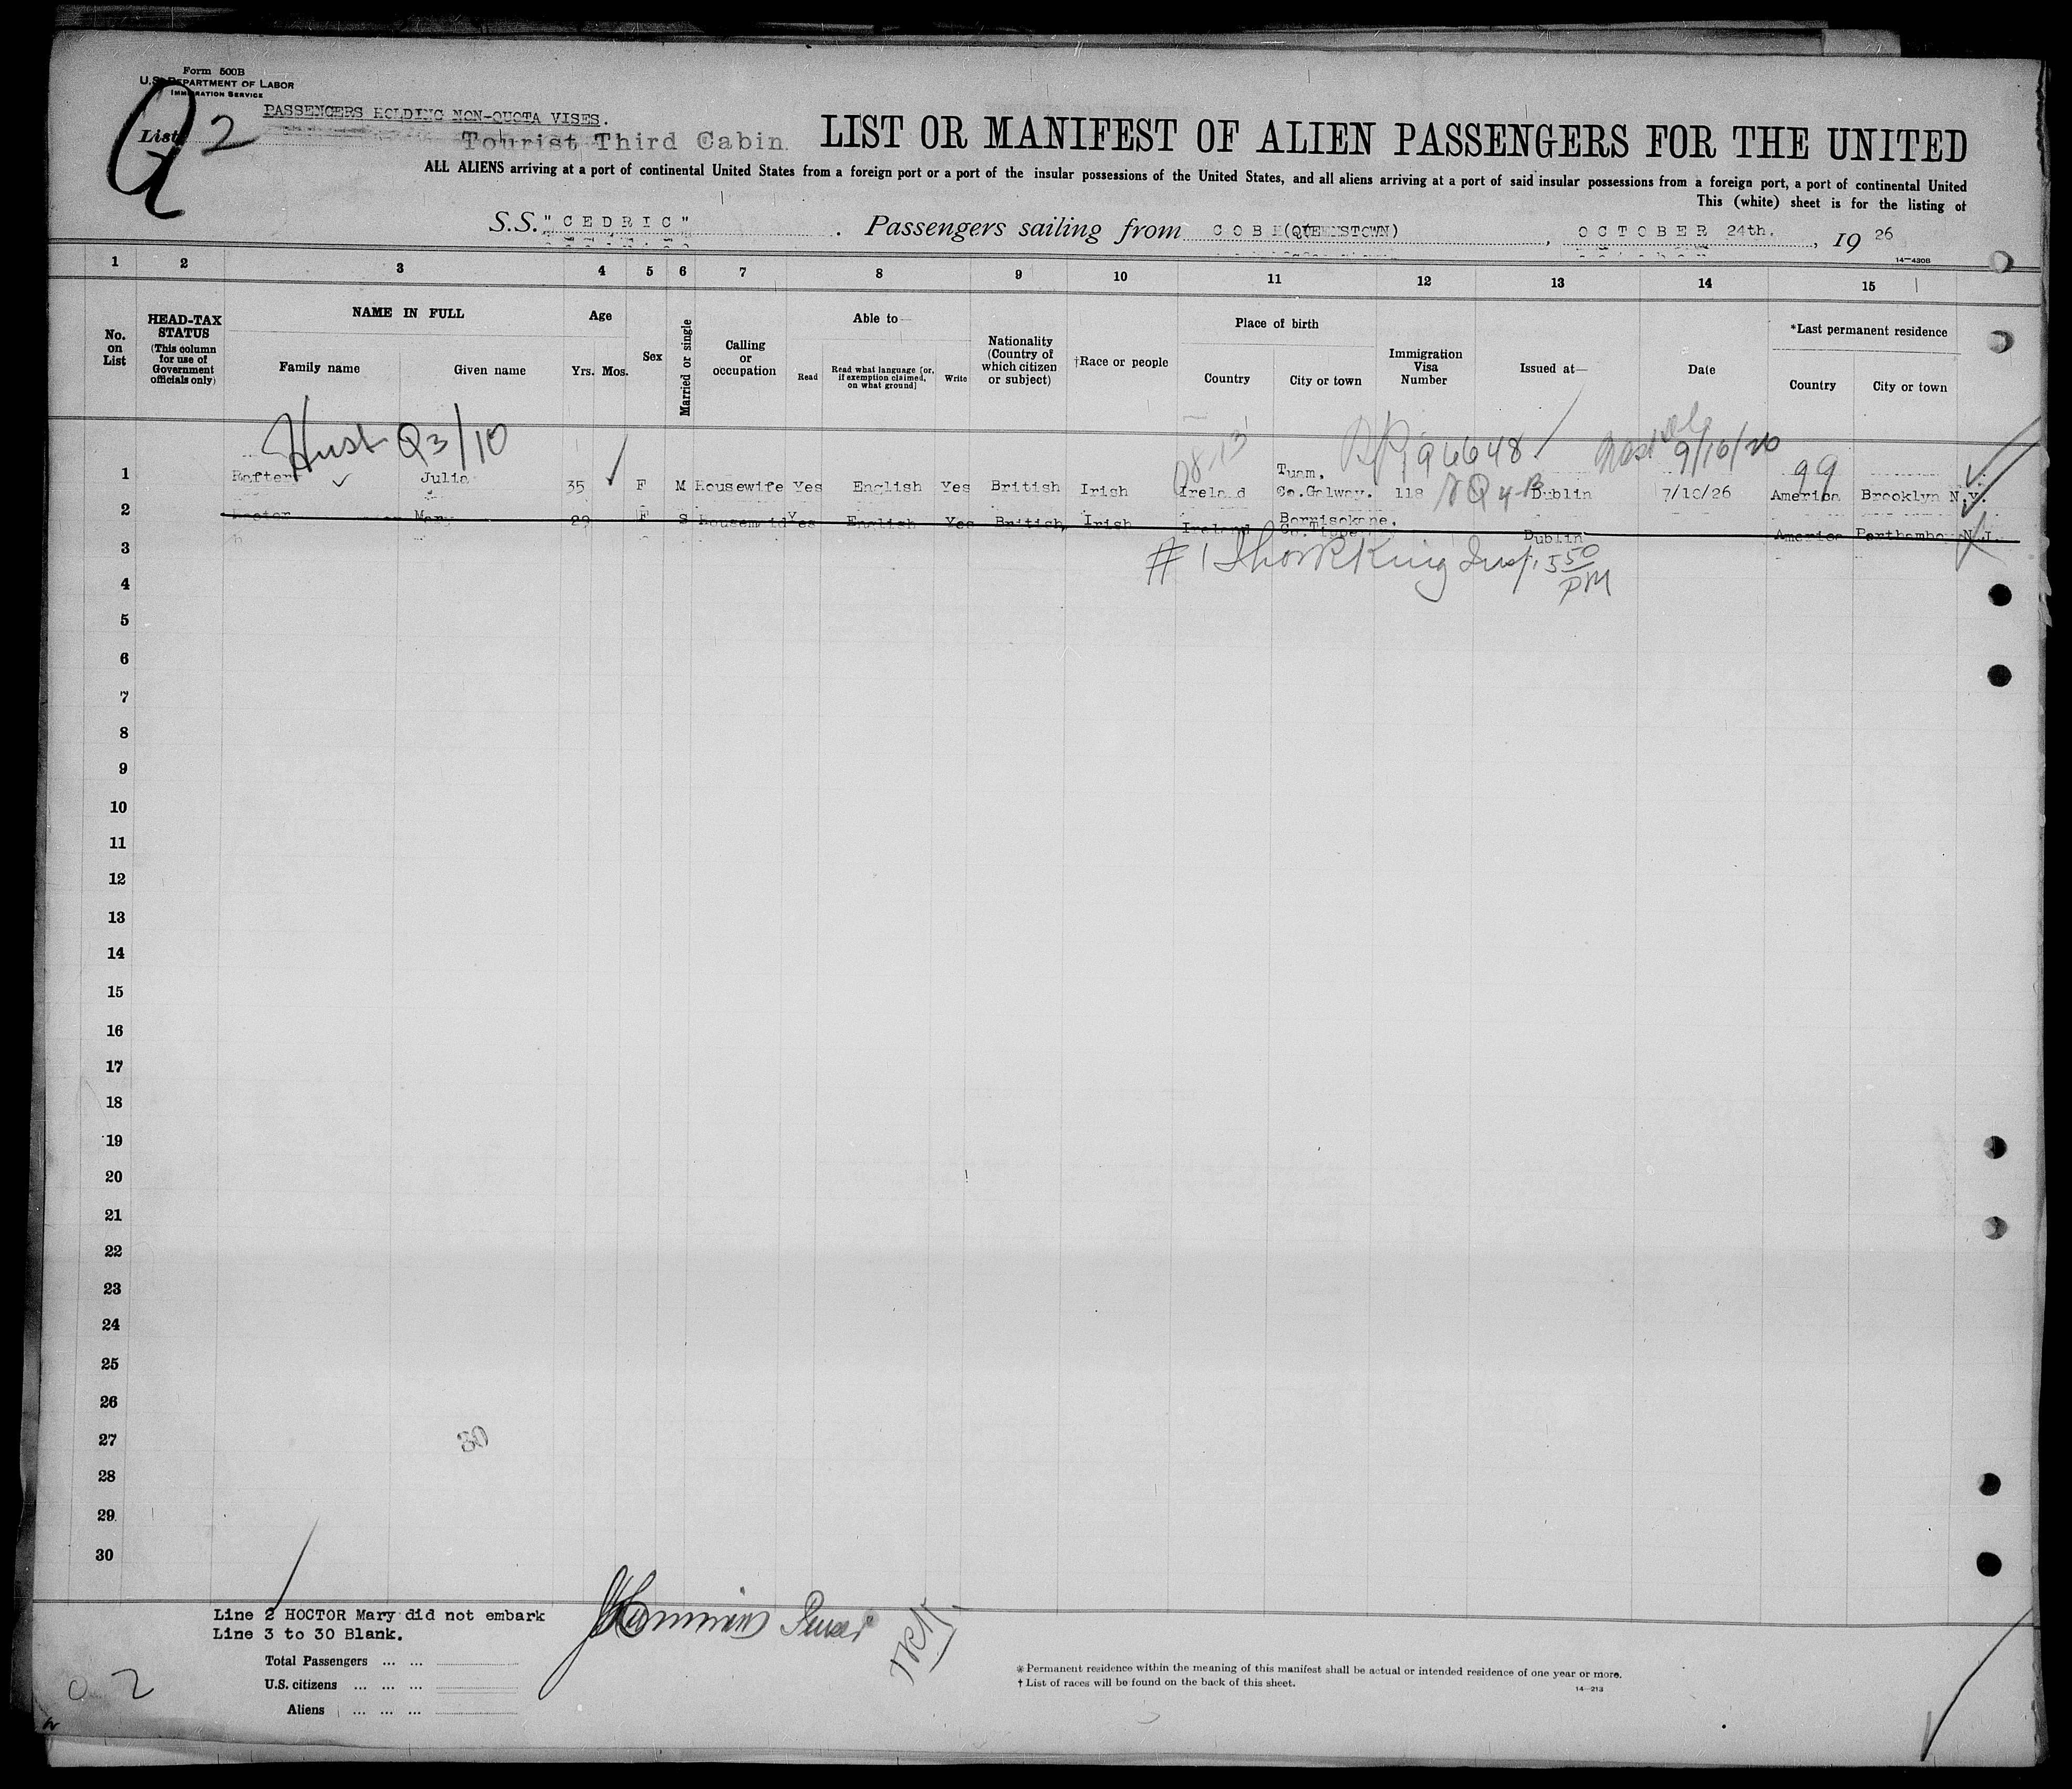 Form 500B
U.S. DEPARTMENT OF LABOR
IMMIGRATION SERVICE
PASSENGERS HOLDING NON-QUOTA VISES.
List 2
Tourist Third Cabin
LIST OR MANIFEST OF ALIEN PASSENGERS FOR THE UNITED
ALL ALIENS arriving at a port of continental United States from a foreign port or a port of the insular possessions of the United States, and all aliens arriving at a port of said insular possessions from a foreign port, a port of continental United
This (white) sheet is for the listing of
S.S. "CEDRIC". Passengers sailing from COBH (QUEENSTOWN), OCTOBER 24th., 1926
14—430B
1 2 3 4 5 6 7 8 9 10 11 12 13 14 15
No. on List
HEAD-TAX STATUS (This column for use of Government officials only)
NAME IN FULL
Family name Given name
Age
Yrs. Mos.
Sex
Married or single
Calling or occupation
Able to—
Read Read what language [or, if exemption claimed, on what ground] Write
Nationality (Country of which citizen or subject)
†Race or people
Place of birth
Country City or town
Immigration Visa Number
Issued at—
Date
*Last permanent residence
Country City or town
Q3/10
196648
9/10/26
99
1 Rafter Julia 35 F M Housewife Yes English Yes British Irish Ireland Tuam, Co.Galway. 118 Dublin 7/10/26 America Brooklyn N.Y.
2 Hoctor Mary 29 F S Housemaid Yes English Yes British Irish Ireland Borrisokane, Dublin America N.J.
3
# 1 5 50 PM
4
5
6
7
8
9
10
11
12
13
14
15
16
17
18
19
20
21
22
23
24
25
26
27
30
28
29
30
Line 2 HOCTOR Mary did not embark
Line 3 to 30 Blank.
Purser
Total Passengers ... ...
U.S. citizens ... ... ...
Aliens ... ... ...
2
* Permanent residence within the meaning of this manifest shall be actual or intended residence of one year or more.
† List of races will be found on the back of this sheet.
14—213